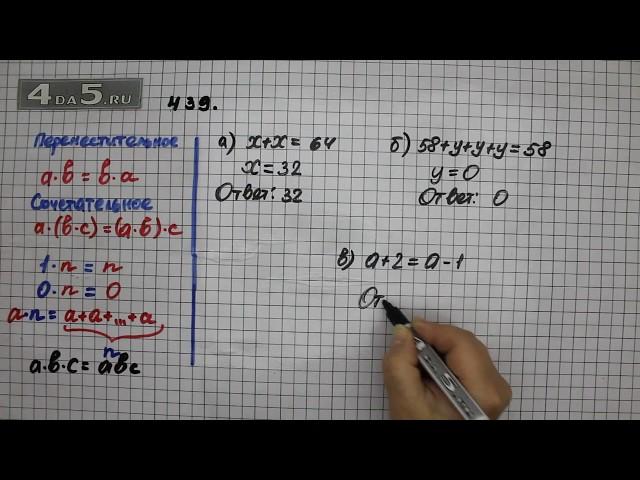 4DA5.RU
439.
Переместительное
a·b = b·a
Сочетательное
a·(b·c)=(a·b)·c
1·n = n
0·n = 0
a·n = a+a+...+a
n
a·b·c = abc
а) x+x = 64
x = 32
Ответ: 32
б) 58+y+y+y=58
y = 0
Ответ: 0
в) a+2 = a-1
От